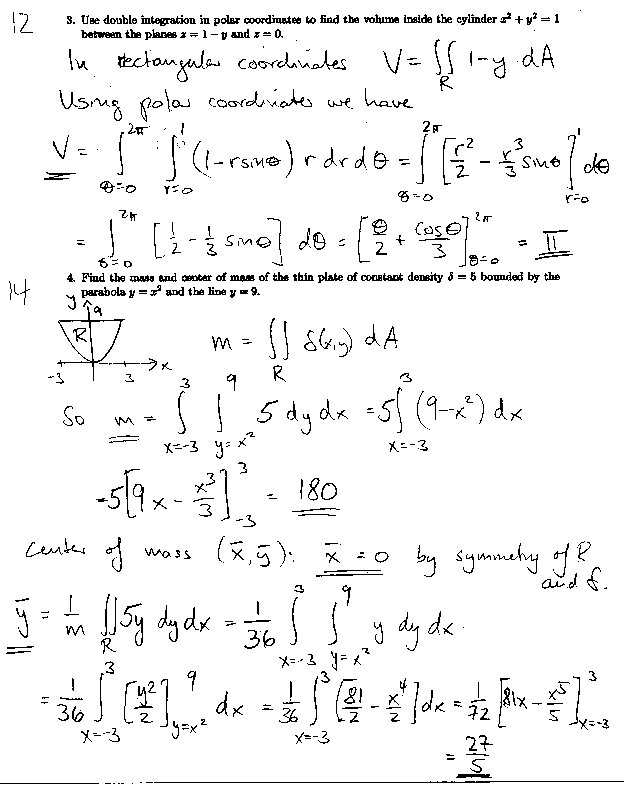 12
3. Use double integration in polar coordinates to find the volume inside the cylinder x² + y² = 1
between the planes z = 1 − y and z = 0.
In rectangular coordinates V = ∬_R 1-y dA
Using polar coordinates we have
V = ∫_{θ=0}^{2π} ∫_{r=0}^{1} (1-r sinθ) r dr dθ = ∫_{θ=0}^{2π} [r²/2 - r³/3 sinθ]_{r=0}^{1} dθ
= ∫_{θ=0}^{2π} [1/2 - 1/3 sinθ] dθ = [θ/2 + cosθ/3]_{θ=0}^{2π} = π
14
4. Find the mass and center of mass of the thin plate of constant density δ = 5 bounded by the
parabola y = x² and the line y = 9.
y 9
R
-3 3 x
m = ∬_R δ(x,y) dA
So m = ∫_{x=-3}^{3} ∫_{y=x²}^{9} 5 dy dx = 5∫_{x=-3}^{3} (9-x²) dx
=5[9x - x³/3]_{-3}^{3} = 180
Center of mass (x̄,ȳ): x̄ = 0 by symmetry of R
and δ.
ȳ = 1/m ∬_R 5y dy dx = 1/36 ∫_{x=-3}^{3} ∫_{y=x²}^{9} y dy dx.
= 1/36 ∫_{x=-3}^{3} [y²/2]_{y=x²}^{9} dx = 1/36 ∫_{x=-3}^{3} [81/2 - x⁴/2] dx = 1/72 [81x - x⁵/5]_{x=-3}^{3}
= 27/5